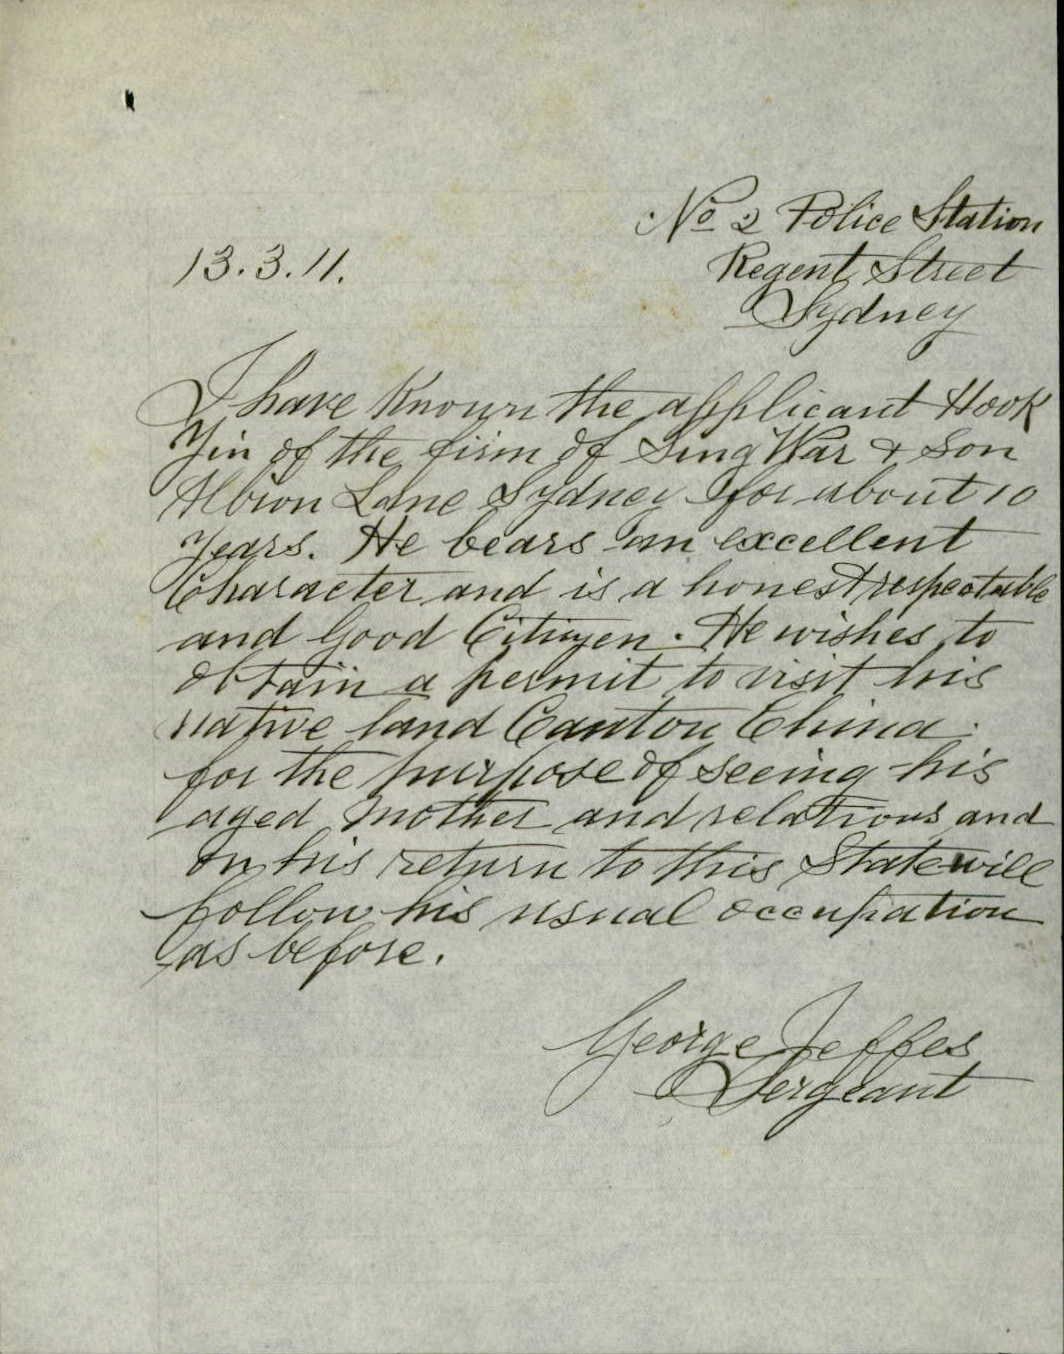 No 2 Police Station
13.3.11.
Regent Street
Sydney
I have known the applicant Hook
Yin of the firm of Sing War & Son
Albion Lane Sydney for about 10
Years. He bears an excellent
Character and is a honest respectable
and Good Citizen. He wishes to
obtain a permit to visit his
native land Canton China.
for the purpose of seeing his
aged mother and relations and
on his return to this State will
follow his usual occupation
as before.
George Jeffes
Sergeant